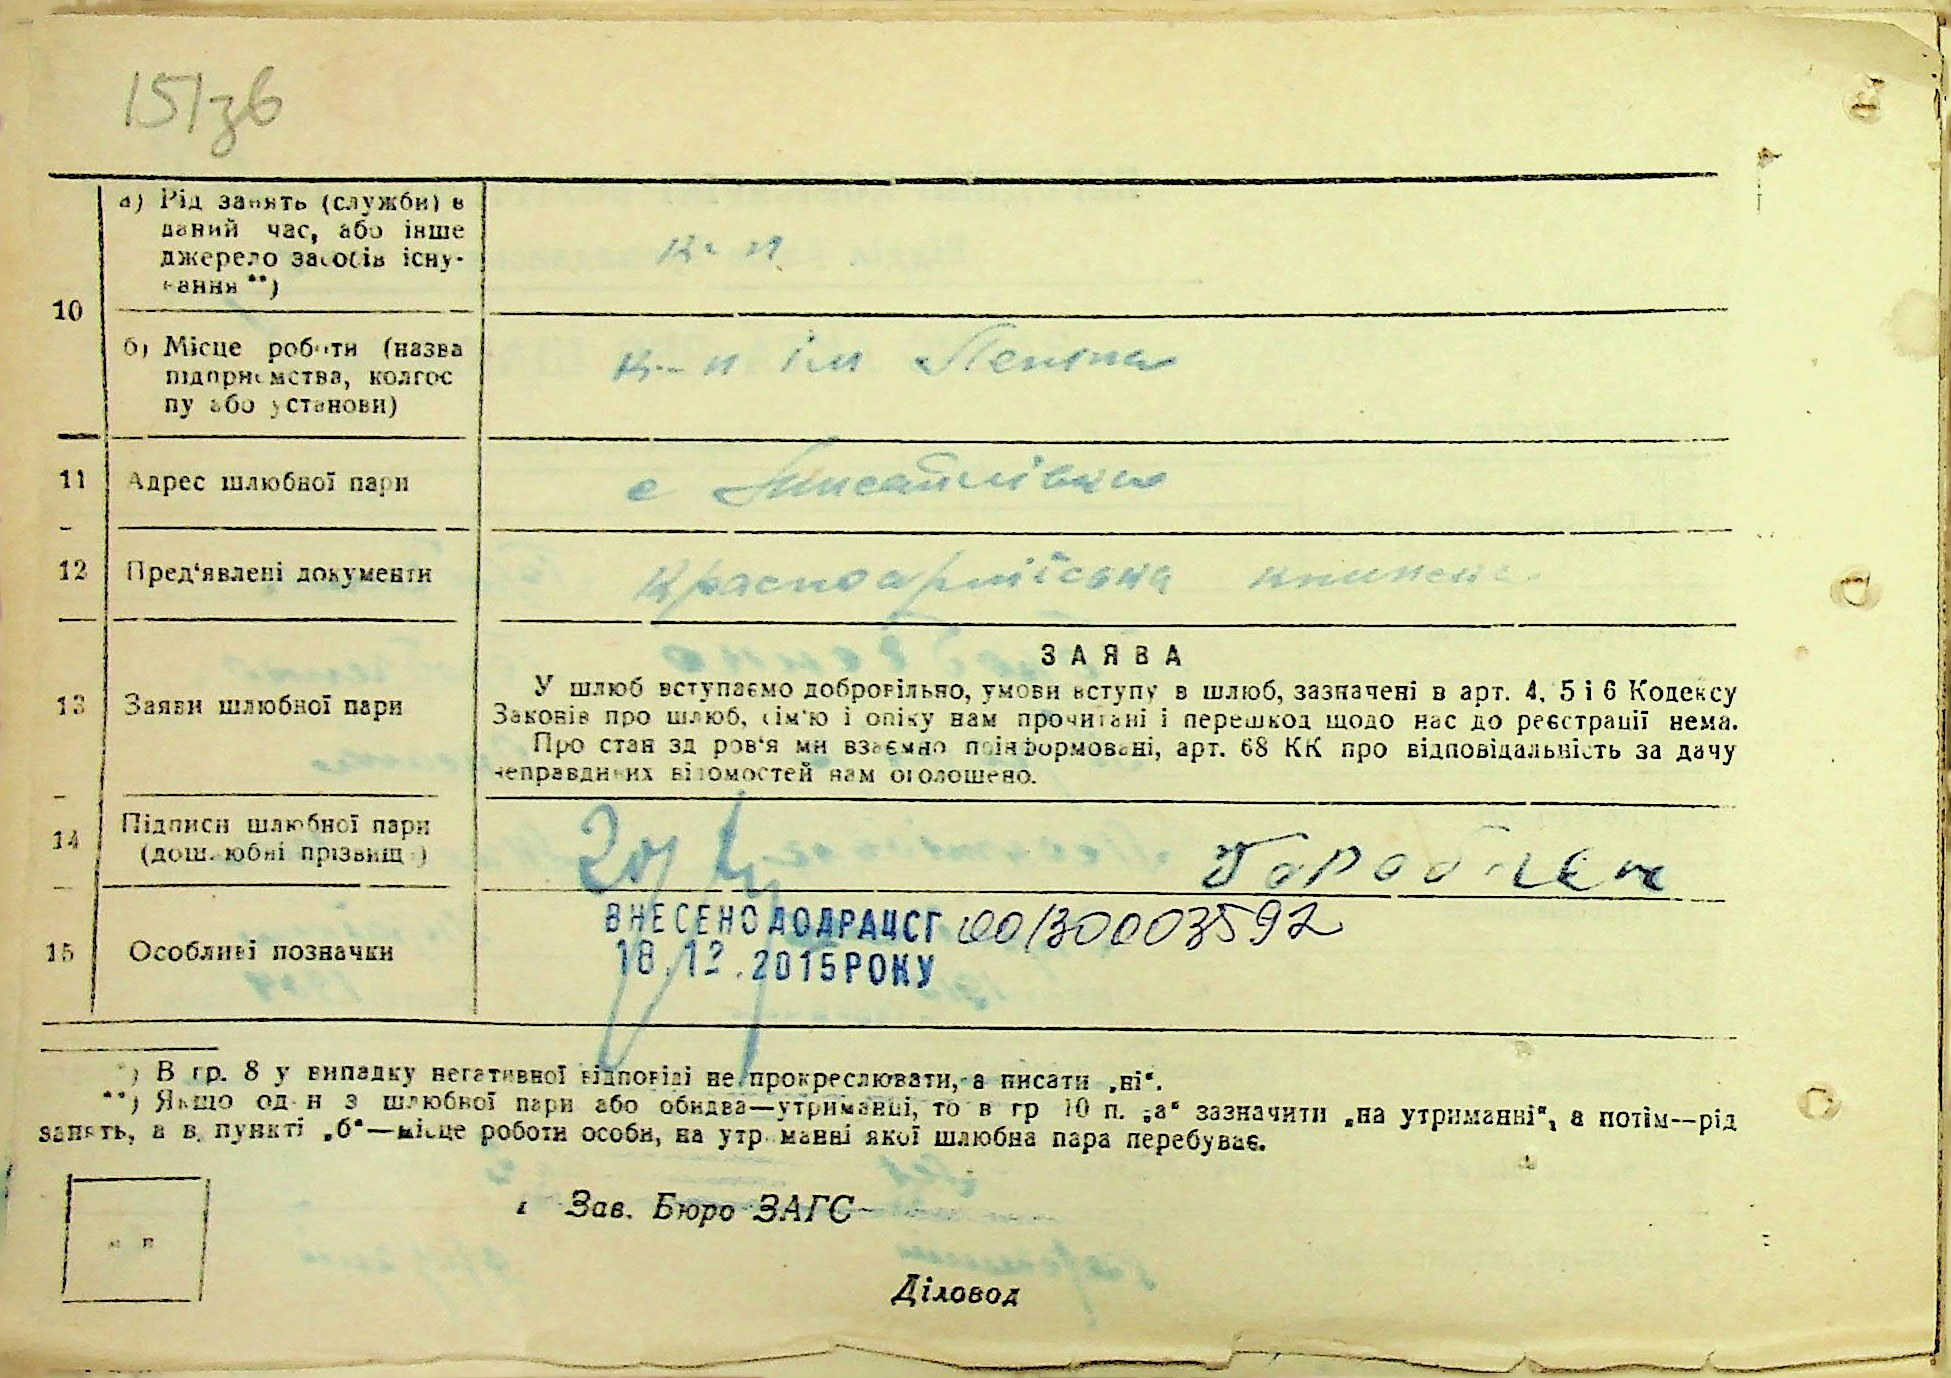 151зв
а) Рід занять (служби) в
даний час, або інше
джерело засобів існу-
вання **)
к-п
10
б) Місце роботи (назва
підприємства, колгос
пу або установи)
к-п ім Леніна
11
Адрес шлюбної пари
с
12
Пред'явлені документи
Красноармійська книжка
ЗАЯВА
13
Заяви шлюбної пари
У шлюб вступаємо добровільно, умови вступу в шлюб, зазначені в арт. 4, 5 і 6 Кодексу
Законів про шлюб, сім'ю і опіку нам прочитані і перешкод щодо нас до реєстрації нема.
Про стан здоров'я ми взаємно поінформовані, арт. 68 КК про відповідальність за дачу
неправдивих відомостей нам оголошено.
14
Підписи шлюбної пари
(дошлюбні прізвища)
15
Особливі позначки
ВНЕСЕНО ДО ДРАЦСГ 00130003592
18.12.2015 РОКУ
*) В гр. 8 у випадку негативної відповіді не прокреслювати, а писати „ні“.
**) Якщо один з шлюбної пари або обидва—утриманці, то в гр 10 п. „а“ зазначити „на утриманні“, а потім—рід
занять, а в пункті „б“—місце роботи особи, на утриманні якої шлюбна пара перебуває.
Зав. Бюро ЗАГС
м п
Діловод